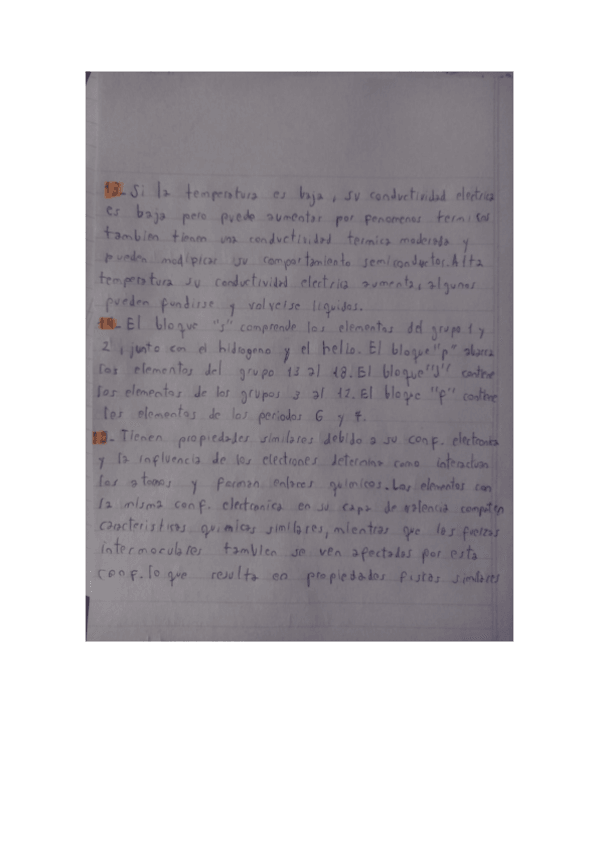 13- Si la temperatura es baja, su conductividad electrica
es baja pero puede aumentar por fenomenos termicos
tambien tienen una conductividad termica moderada y
pueden modificar su comportamiento semiconductor. Alta
temperatura su conductividad electrica aumenta, algunos
pueden fundirse y volverse liquidos.
14- El bloque "s" comprende los elementos del grupo 1 y
2, junto con el hidrogeno y el helio. El bloque "p" abarca
los elementos del grupo 13 al 18. El bloque "d" contiene
los elementos de los grupos 3 al 12. El bloque "f" contiene
los elementos de los periodos 6 y 7.
15- Tienen propiedades similares debido a su conf. electronica
y la influencia de los electrones determina como interactuan
los atomos y forman enlaces quimicos. Los elementos con
la misma conf. electronica en su capa de valencia comparten
caracteristicas quimicas similares, mientras que las fuerzas
intermoculares tambien se ven afectados por esta
conf. lo que resulta en propiedades fisicas similares